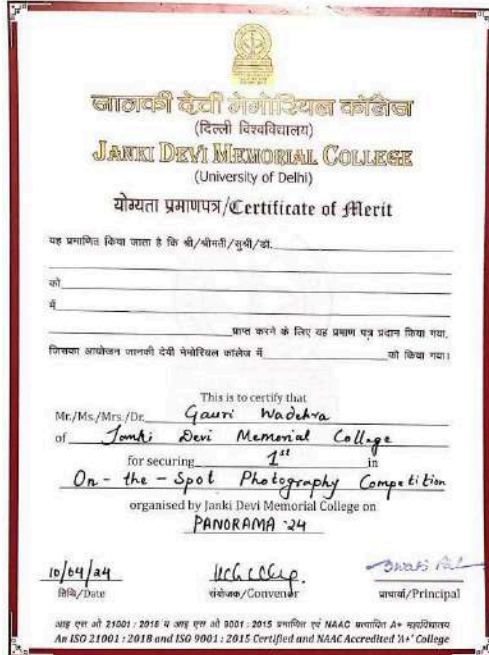 जानकी देवी मेमोरियल कॉलेज
(दिल्ली विश्वविद्यालय)
JANKI DEVI MEMORIAL COLLEGE
(University of Delhi)
योग्यता प्रमाणपत्र/Certificate of Merit
यह प्रमाणित किया जाता है कि श्री/श्रीमती/सुश्री/डॉ.
को
में
प्राप्त करने के लिए यह प्रमाण पत्र प्रदान किया गया,
जिसका आयोजन जानकी देवी मेमोरियल कालेज में को किया गया।
This is to certify that
Mr./Ms./Mrs./Dr. Gauri Wadehra
of Janki Devi Memorial College
for securing 1st in
On-the-Spot Photography Competition
organised by Janki Devi Memorial College on
PANORAMA '24
10/04/24 Swati Pal
तिथि/Date संयोजक/Convenor प्राचार्या/Principal
आइ एस ओ 21001 : 2018 व आइ एस ओ 9001 : 2015 प्रमाणित एवं NAAC प्रत्यायित A+ महाविद्यालय
An ISO 21001 : 2018 and ISO 9001 : 2015 Certified and NAAC Accredited 'A+' College